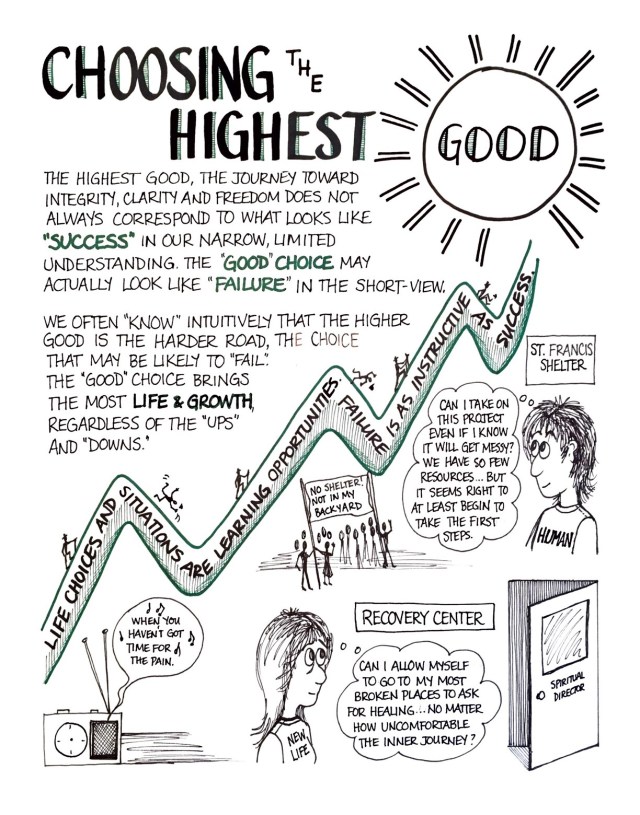 CHOOSING THE
HIGHEST
GOOD
THE HIGHEST GOOD, THE JOURNEY TOWARD
INTEGRITY, CLARITY AND FREEDOM DOES NOT
ALWAYS CORRESPOND TO WHAT LOOKS LIKE
"SUCCESS" IN OUR NARROW, LIMITED
UNDERSTANDING. THE "GOOD" CHOICE MAY
ACTUALLY LOOK LIKE "FAILURE" IN THE SHORT-VIEW.
WE OFTEN "KNOW" INTUITIVELY THAT THE HIGHER
GOOD IS THE HARDER ROAD, THE CHOICE
THAT MAY BE LIKELY TO "FAIL".
THE "GOOD" CHOICE BRINGS
THE MOST LIFE & GROWTH,
REGARDLESS OF THE "UPS"
AND "DOWNS."
LIFE CHOICES AND SITUATIONS ARE LEARNING OPPORTUNITIES. FAILURE IS AS INSTRUCTIVE AS SUCCESS.
ST. FRANCIS
SHELTER
CAN I TAKE ON
THIS PROJECT
EVEN IF I KNOW
IT WILL GET MESSY?
WE HAVE SO FEW
RESOURCES... BUT
IT SEEMS RIGHT TO
AT LEAST BEGIN TO
TAKE THE FIRST
STEPS.
HUMAN
NO SHELTER!
NOT IN MY
BACKYARD
WHEN YOU
HAVEN'T GOT
TIME FOR
THE PAIN.
RECOVERY CENTER
CAN I ALLOW MYSELF
TO GO TO MY MOST
BROKEN PLACES TO ASK
FOR HEALING...NO MATTER
HOW UNCOMFORTABLE
THE INNER JOURNEY?
NEW
LIFE
SPIRITUAL
DIRECTOR